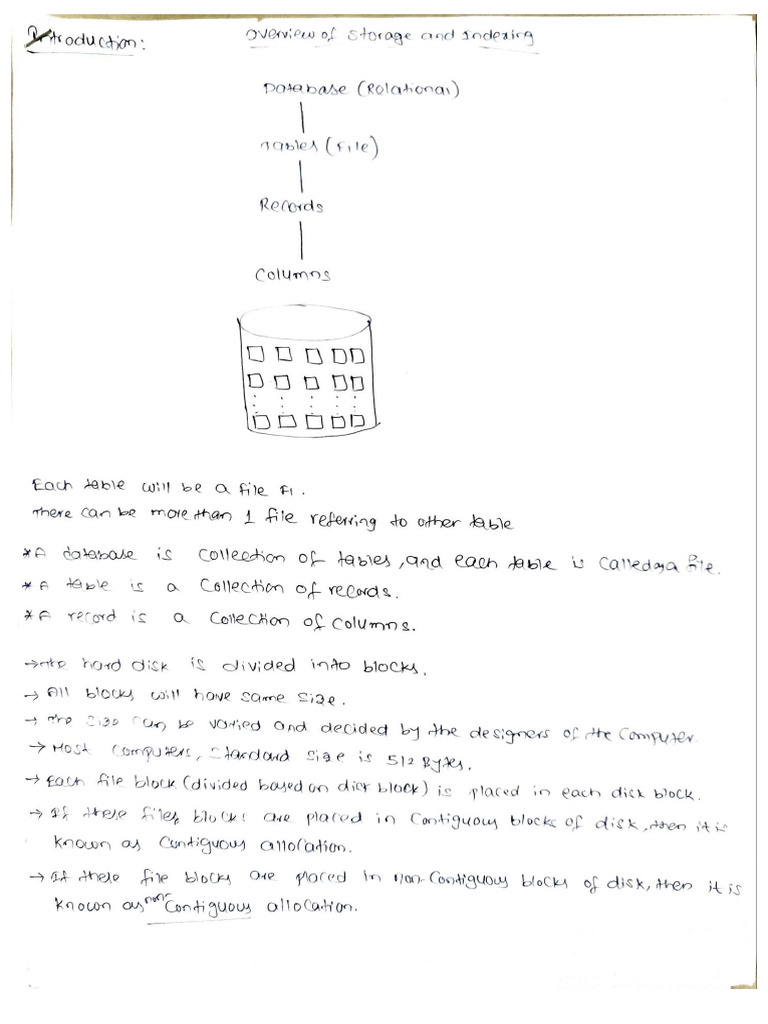 Introduction:
Overview of Storage and Indexing
Database (Relational)
Tables (File)
Records
Columns
Each table will be a file F1.
There can be more than 1 file referring to other table
* A database is collection of tables, and each table is called as a file.
* A table is a collection of records.
* A record is a collection of columns.
→ The hard disk is divided into blocks.
→ All blocks will have same size.
→ The size can be varied and decided by the designers of the computer.
→ Most computers, standard size is 512 Bytes.
→ Each file block (divided based on disk block) is placed in each disk block.
→ If these files blocks are placed in contiguous blocks of disk, then it is
known as contiguous allocation.
→ If these file blocks are placed in non-contiguous blocks of disk, then it is
known as non-contiguous allocation.